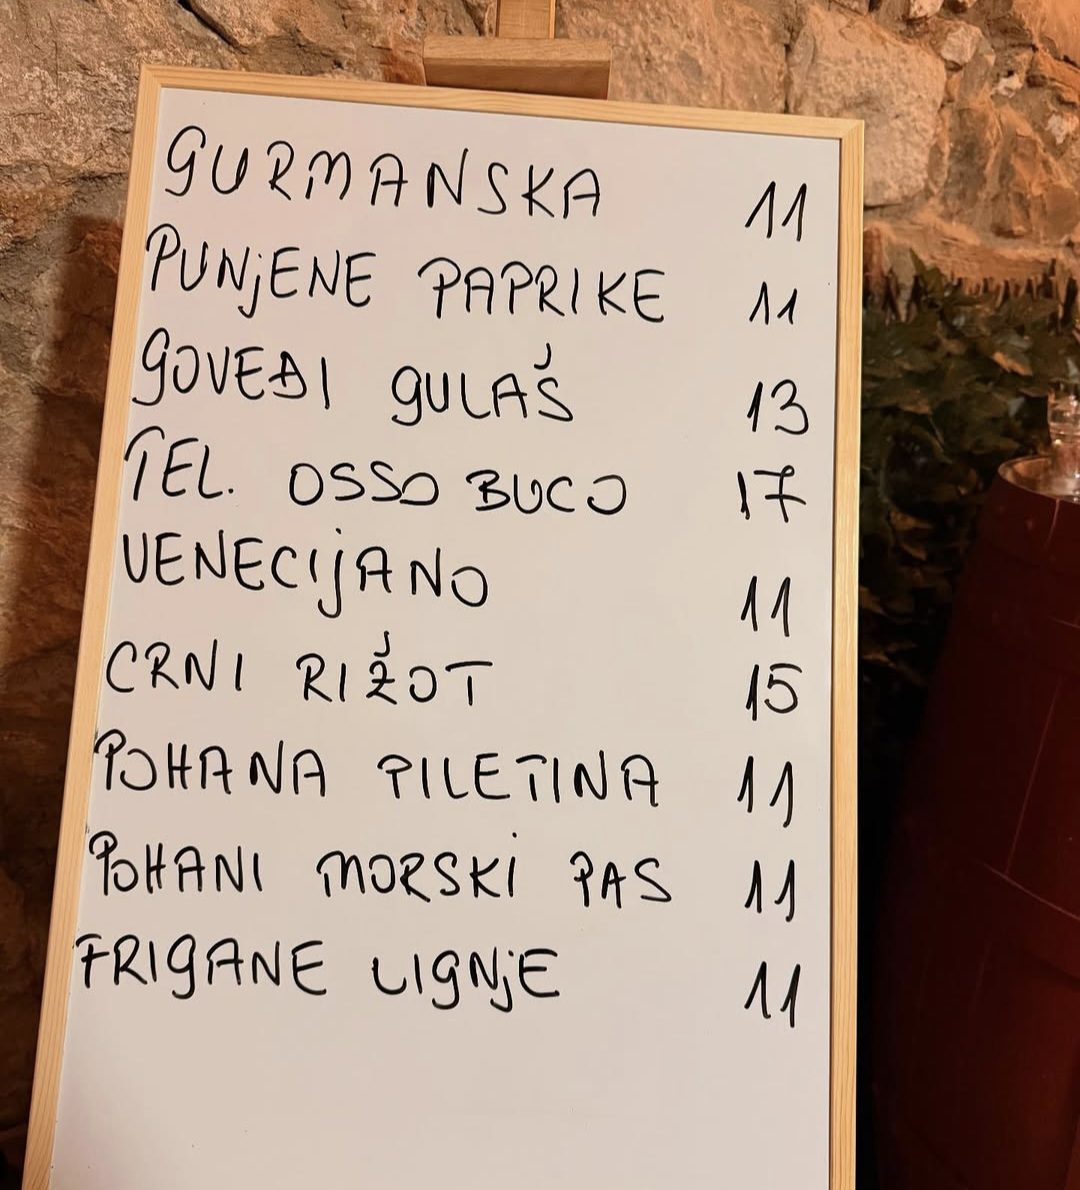 GURMANSKA 11
PUNJENE PAPRIKE 11
GOVEĐI GULAŠ 13
TEL. OSSO BUCO 17
VENECIJANO 11
CRNI RIŽOT 15
POHANA PILETINA 11
POHANI MORSKI PAS 11
FRIGANE LIGNJE 11